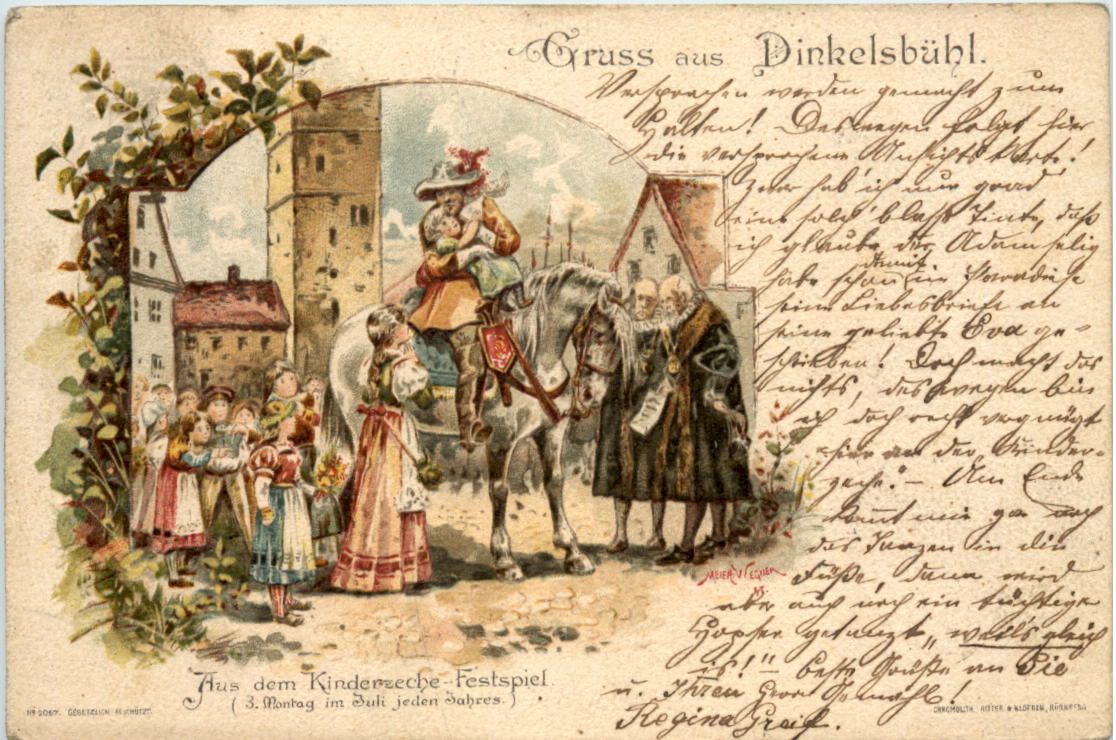 Gruss aus Dinkelsbühl.
Versprochen werden gemacht zum
Halten! Deswegen folgt hier
die versprochene Ansichtskarte!
Zwar hab' ich nur grad
eine solch' blasse Tinte, daß
ich glaube der Adam selig
habe schon damit im Paradiese
seine Liebesbriefe an
seine geliebte Eva ge-
schrieben! Doch macht das
nichts, deswegen bin
ich doch recht vergnügt
hier an der Kinder-
zeche. – Am Ende
kommt mir gar noch
das Tanzen in die
Füße, dann wird
aber auch noch ein tüchtiger
Hopser getanzt „weil's gleich
is!" beste Grüße an Sie
u. Ihren Herrn Gemahl!
Regina Greif.
MEIER-WEGNER
Aus dem Kinderzeche-Festspiel.
(3. Montag im Juli jeden Jahres.)
No 2067. GESETZLICH GESCHÜTZT.
CHROMOLITH. ROITER & KLOEDEN, NÜRNBERG